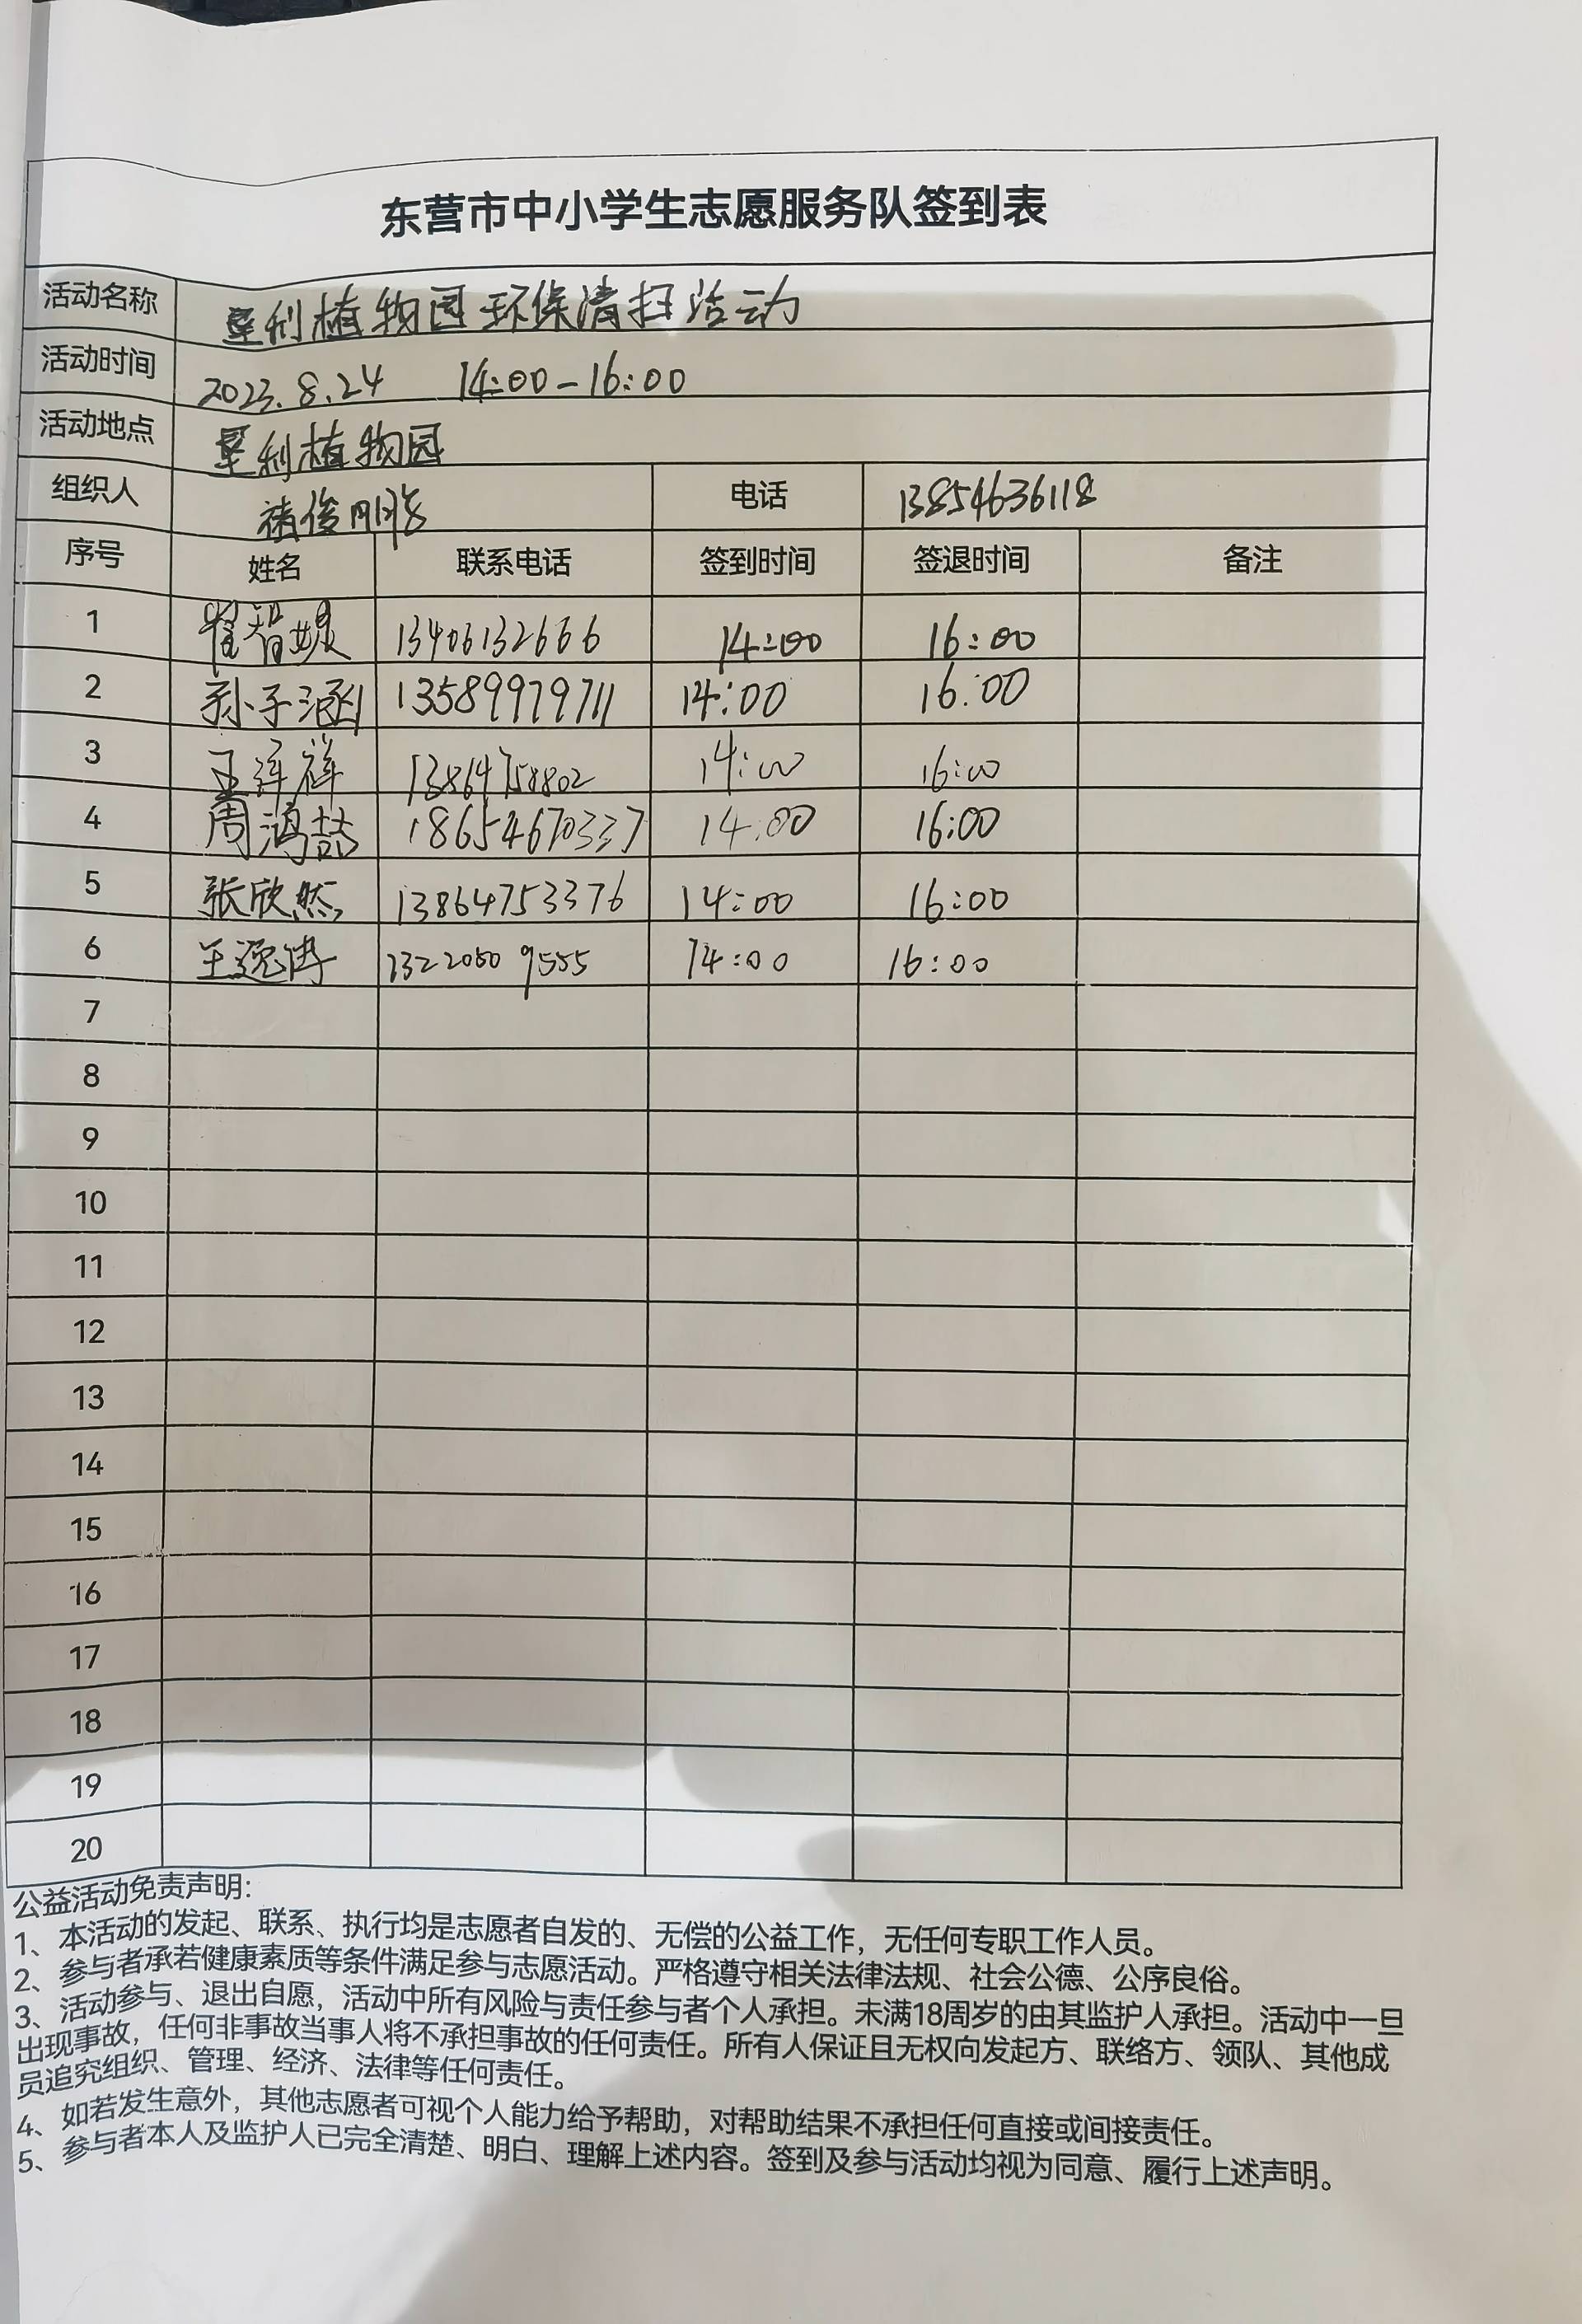 东营市中小学生志愿服务队签到表
活动名称 垦利植物园环保清扫活动
活动时间 2023.8.24 14:00-16:00
活动地点 垦利植物园
组织人 褚俊刚 电话 13854636118
序号 姓名 联系电话 签到时间 签退时间 备注
1 崔智媛 13406132666 14:00 16:00
2 孙子涵 13589979711 14:00 16:00
3 王泽祥 13864758802 14:00 16:00
4 周鸿喆 18654670337 14:00 16:00
5 张欣然 13864753376 14:00 16:00
6 王逸涛 13220809555 14:00 16:00
7
8
9
10
11
12
13
14
15
16
17
18
19
20
公益活动免责声明：
1、本活动的发起、联系、执行均是志愿者自发的、无偿的公益工作，无任何专职工作人员。
2、参与者承若健康素质等条件满足参与志愿活动。严格遵守相关法律法规、社会公德、公序良俗。
3、活动参与、退出自愿，活动中所有风险与责任参与者个人承担。未满18周岁的由其监护人承担。活动中一旦
出现事故，任何非事故当事人将不承担事故的任何责任。所有人保证且无权向发起方、联络方、领队、其他成
员追究组织、管理、经济、法律等任何责任。
4、如若发生意外，其他志愿者可视个人能力给予帮助，对帮助结果不承担任何直接或间接责任。
5、参与者本人及监护人已完全清楚、明白、理解上述内容。签到及参与活动均视为同意、履行上述声明。